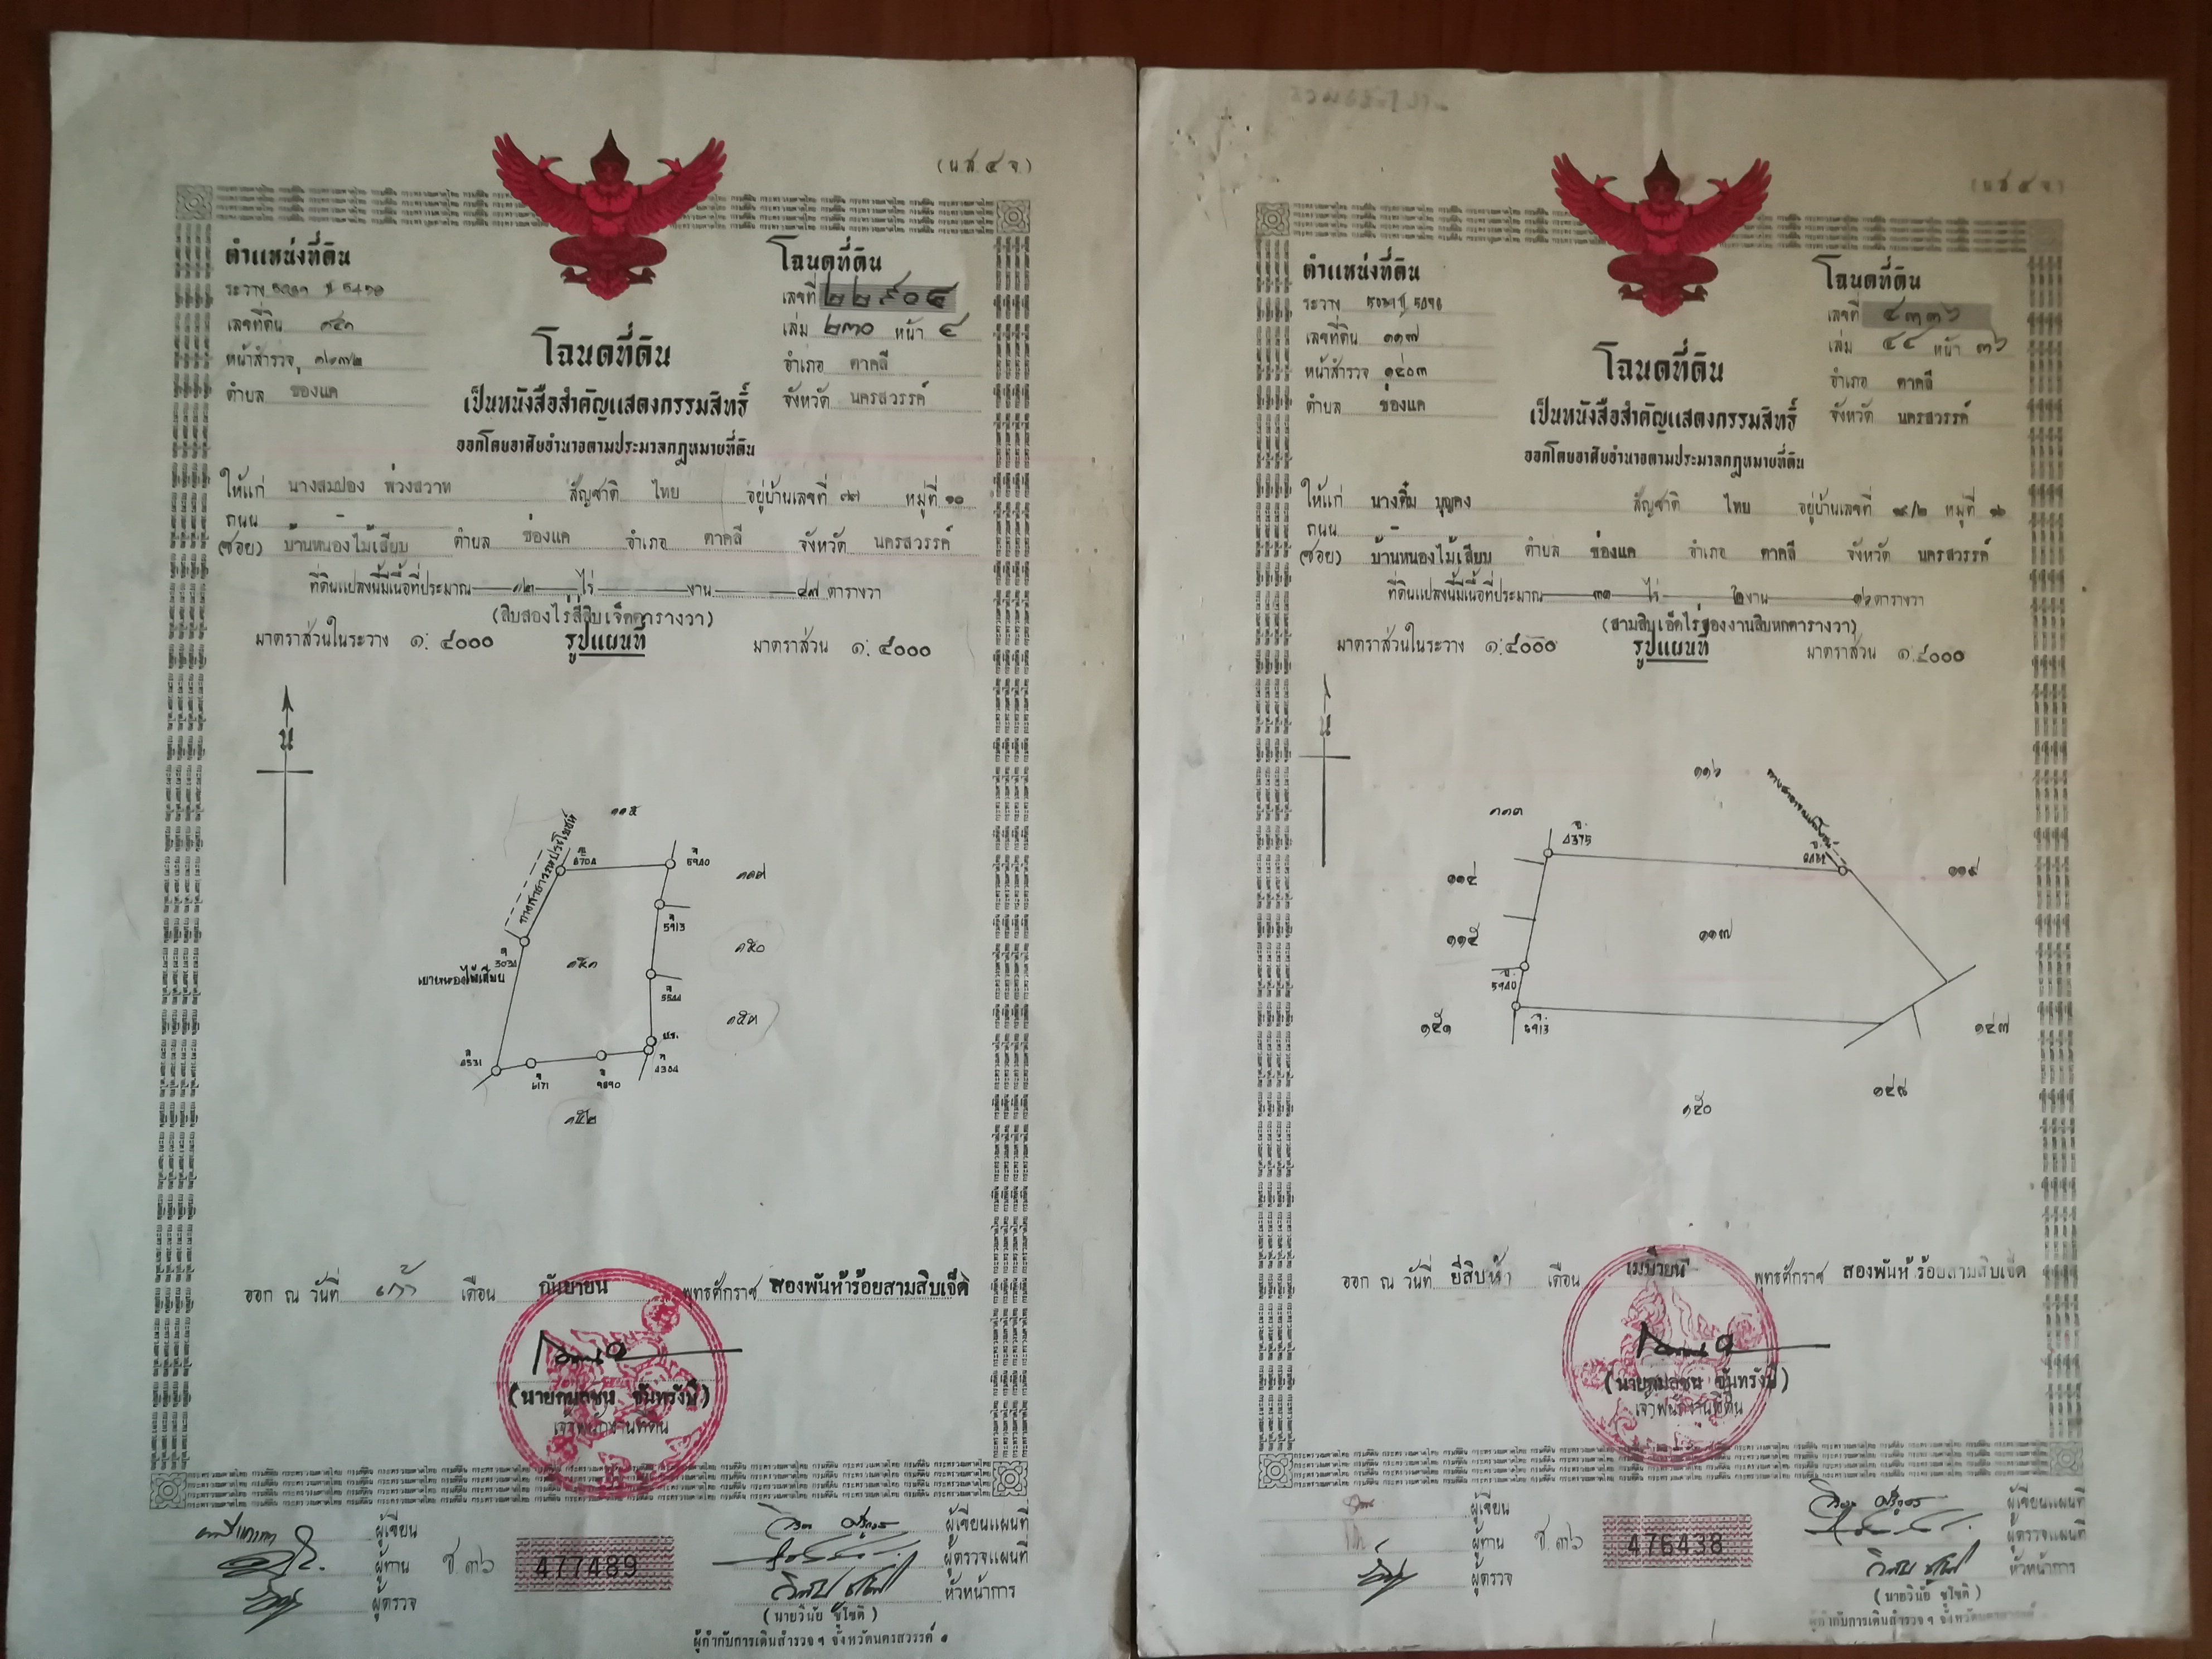 (น.ส. ๔ จ.)
ตำแหน่งที่ดิน
ระวาง
เลขที่ดิน
หน้าสำรวจ
ตำบล ช่องแค
โฉนดที่ดิน
เลขที่ ๒๒๙๐๔
เล่ม ๒๓๐ หน้า ๔
อำเภอ ตาคลี
จังหวัด นครสวรรค์
โฉนดที่ดิน
เป็นหนังสือสำคัญแสดงกรรมสิทธิ์
ออกโดยอาศัยอำนาจตามประมวลกฎหมายที่ดิน
ให้แก่ นางสมปอง พ่วงสวาท สัญชาติ ไทย อยู่บ้านเลขที่ ๗๗ หมู่ที่ ๑๐
ถนน -
(ซอย) บ้านหนองไม้เสียบ ตำบล ช่องแค อำเภอ ตาคลี จังหวัด นครสวรรค์
ที่ดินแปลงนี้มีเนื้อที่ประมาณ ๑๒ ไร่ งาน ๔๗ ตารางวา
(สิบสองไร่สี่สิบเจ็ดตารางวา)
มาตราส่วนในระวาง ๑:๔๐๐๐ รูปแผนที่ มาตราส่วน ๑:๔๐๐๐
น
๑๑๕
ทางสาธารณประโยชน์
5940
๑๑๗
5913
๑๕๐
๑๕๑
5544
๑๕๓
4384
6171
๑๕๒
ออก ณ วันที่ เก้า เดือน กันยายน พุทธศักราช สองพันห้าร้อยสามสิบเจ็ด
(นายกมลชน จันทรังษี)
เจ้าพนักงานที่ดิน
ผู้เขียน
ผู้ทาน
ผู้ตรวจ
ช.๓๖
477489
ผู้เขียนแผนที่
ผู้ตรวจแผนที่
หัวหน้าการ
(นายวินัย ชูโชติ)
ผู้กำกับการเดินสำรวจ ฯ จังหวัดนครสวรรค์ ๑
(น.ส. ๔ จ.)
ตำแหน่งที่ดิน
ระวาง
เลขที่ดิน ๑๑๗
หน้าสำรวจ ๑๔๐๓
ตำบล ช่องแค
โฉนดที่ดิน
เลขที่ ๔๓๓๖
เล่ม ๔๔ หน้า ๓๖
อำเภอ ตาคลี
จังหวัด นครสวรรค์
โฉนดที่ดิน
เป็นหนังสือสำคัญแสดงกรรมสิทธิ์
ออกโดยอาศัยอำนาจตามประมวลกฎหมายที่ดิน
ให้แก่ นางติ๋ม บุญคง สัญชาติ ไทย อยู่บ้านเลขที่ หมู่ที่
ถนน -
(ซอย) บ้านหนองไม้เสียบ ตำบล ช่องแค อำเภอ ตาคลี จังหวัด นครสวรรค์
ที่ดินแปลงนี้มีเนื้อที่ประมาณ ๓๑ ไร่ ๒ งาน ๑๖ ตารางวา
(สามสิบเอ็ดไร่สองงานสิบหกตารางวา)
มาตราส่วนในระวาง ๑:๔๐๐๐ รูปแผนที่ มาตราส่วน ๑:๔๐๐๐
น
๑๑๖
ทางสาธารณประโยชน์
๑๑๓
4375
๑๑๔
๑๑๙
๑๑๕
๑๑๗
5940
๑๕๑
5913
๑๔๗
๑๔๘
๑๕๐
ออก ณ วันที่ ยี่สิบห้า เดือน เมษายน พุทธศักราช สองพันห้าร้อยสามสิบเจ็ด
(นายกมลชน จันทรังษี)
เจ้าพนักงานที่ดิน
ผู้เขียน
ผู้ทาน
ผู้ตรวจ
ช.๓๖
476438
ผู้เขียนแผนที่
ผู้ตรวจแผนที่
หัวหน้าการ
(นายวินัย ชูโชติ)
ผู้กำกับการเดินสำรวจ ฯ จังหวัดนครสวรรค์